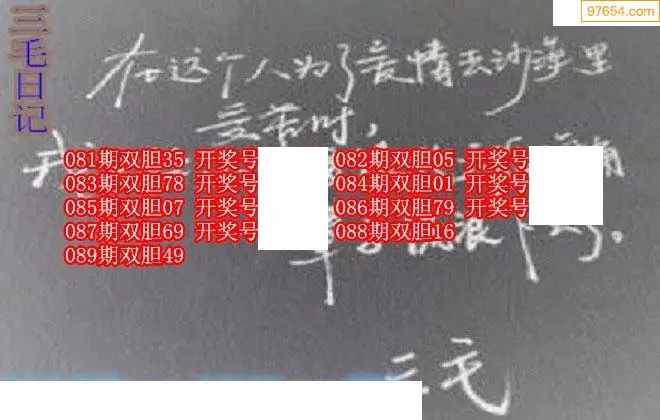 97654.com
三毛日记
在这个人为了爱情去沙漠里
受苦时,
081期双胆35 开奖号
082期双胆05 开奖号
083期双胆78 开奖号
084期双胆01 开奖号
085期双胆07 开奖号
086期双胆79 开奖号
087期双胆69 开奖号
088期双胆16
089期双胆49
三毛